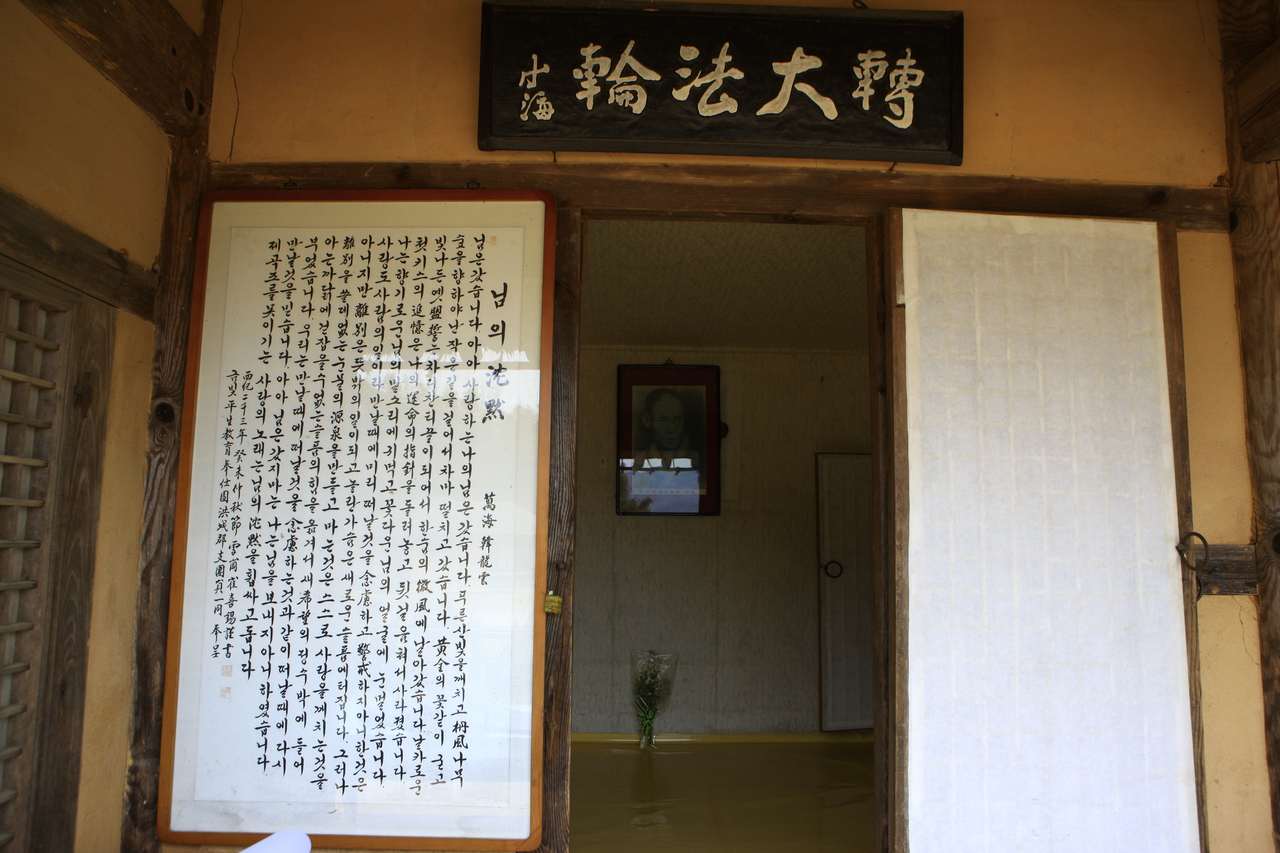 轉大法輪
님의 沈默
萬海 韓龍雲
님은갔습니다 아아 사랑하는나의님은갔습니다 푸른산빛을깨치고 枬風나무
숲을향하야난작은길을걸어서차마 떨치고갔습니다 黃金의꽃같이 굳고
빛나든옛盟誓는차디찬티끌이되어서 한숨의 微風에날아갔습니다 날카로운
첫키스의追憶은 나의運命의指針을돌려놓고 뒷걸음쳐서사라졌습니다
나는향기로운님의말소리에귀먹고 꽃다운님의얼굴에 눈멀었습니다
사랑도사람의일이라 만날때에미리떠날것을念慮하고 警戒하지아니한것은
아니지만 離別은뜻밖의일이되고 놀란가슴은새로운슬픔에터집니다 그러나
離別을쓸데없는눈물의源泉을만들고 마는것은 스스로사랑을깨치는것을
아는까닭에 걷잡을수없는슬픔의힘을옮겨서 새希望의정수박에 들어
부었습니다 우리는만날때에떠날것을念慮하는것과같이 떠날때에다시
만날것을믿습니다 아아 님은갔지마는 나는님을보내지아니하였습니다
제곡조를못이기는 사랑의노래는님의 沈默을휩싸고돕니다
西紀二千三年 癸未仲秋節 崔喜錫謹書
금빛平生教育奉仕團洪城郡支團員一同 奉呈